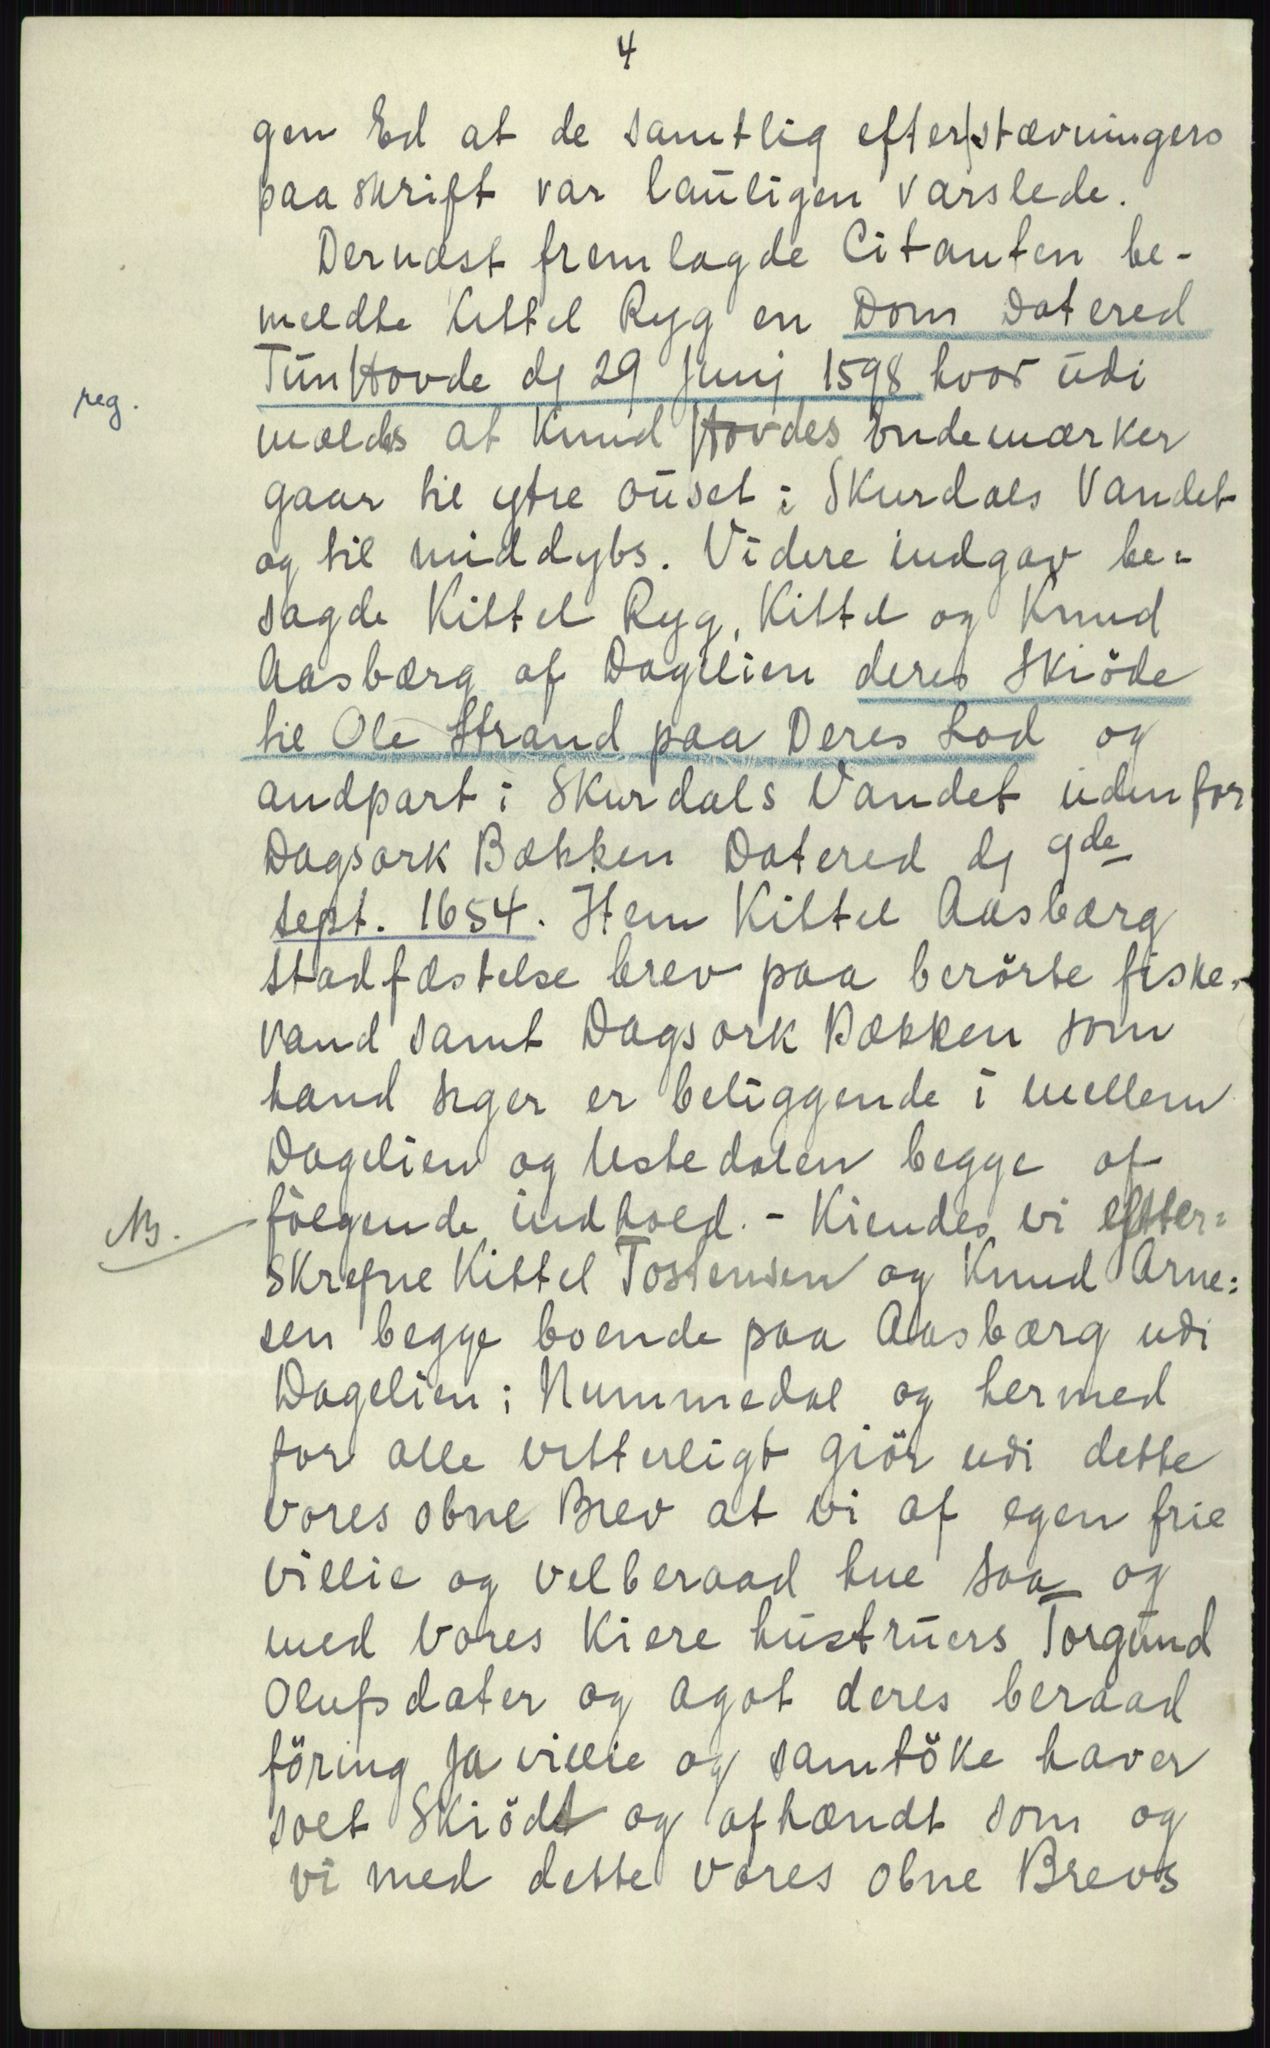 4
gen Ed at de samtlig efter stævningers
paaskrift var lauligen varslede.
Dernæst fremlagde Citanten be-
meldte Kittel Ryg en Dom Datered
TunHovde dj 29 Junj 1598 hvor udi
reg.
mældes at Knud Hovdes Endemærker
gaar til ytre ouset i Skurdals Vandet
og til middybs. Videre indgav be=
sagde Kittel Ryg, Kittel og Knud
Aasbærg af Dagelien deres Skiöde
til Ole Strand paa Deres Lod og
andpart i Skurdals Vandet udenfor
Dagsork Bækken Datered dj 9de
sept. 1654. Item Kittel Aasbærg
stadfæstelse brev paa berörte fiske-
vand samt Dagsork Bækken som
hand siger er beliggende i mellem
Dagelien og Ustedalen begge af
NB.
fölgende indhold. - Kiendes vi efter=
Skrefne Kittel Tostensen og Knud Arne=
sen begge boende paa Aasbærg udi
Dagelien i Nummedal og hermed
for alle vitterligt Giör udi dette
vores obne Brev at vi af egen frie
villie og velberaad hue saa og
med vores Kiere hustruers Torgund
Olufsdater og Agot deres beraad
föring Ja villie og samtöke haver
solt Skiödt og afhændt som og
vi med dette vores obne Brevs